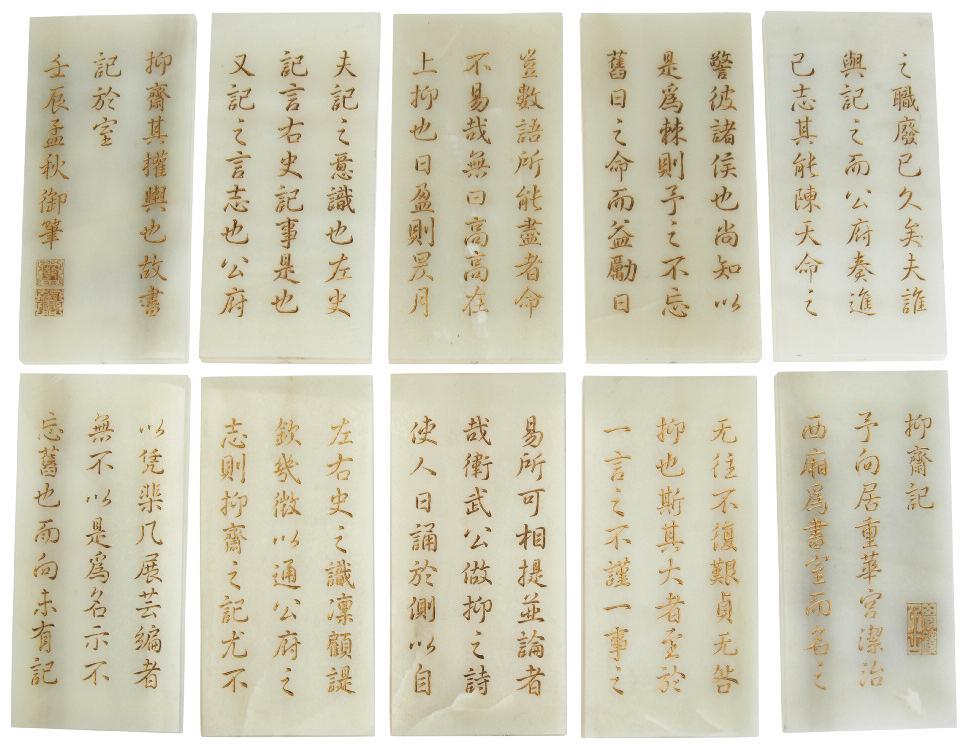 之職廢已久矣夫誰
與記之而公府奏進
己志其能陳天命之
警彼諸侯也尚知以
是爲棘則予之不忘
舊日之命而益勵日
豈數語所能盡者命
不易哉無曰高高在
上抑也日盈則昃月
夫記之意識也左史
記言右史記事是也
又記之言志也公府
抑齋其權輿也故書
記於室
壬辰孟秋御筆
抑齋記
予向居重華宮潔治
西廂爲書室而名之
无往不復艱貞无咎
抑也斯其大者至於
一言之不謹一事之
易所可相提並論者
哉衛武公做抑之詩
使人日誦於側以自
左右史之識凜顧諟
欽幾微以通公府之
志則抑齋之記尤不
以凭棐几展芸編者
無不以是爲名示不
忘舊也而向未有記